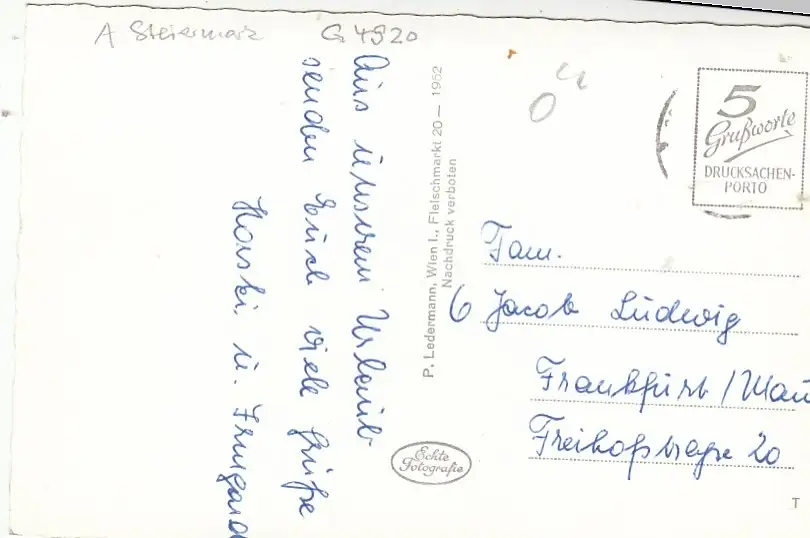 A Steiermark G 4920
Aus unserem Urlaub
senden Euch viele Grüße
Horski u. Irmgard
P. Ledermann, Wien I., Fleischmarkt 20 — 1962
Nachdruck verboten
5
Grußworte
DRUCKSACHEN-
PORTO
Fam.
6 Jacob Ludwig
Frankfurt / Main
20
Echte
Fotografie
T